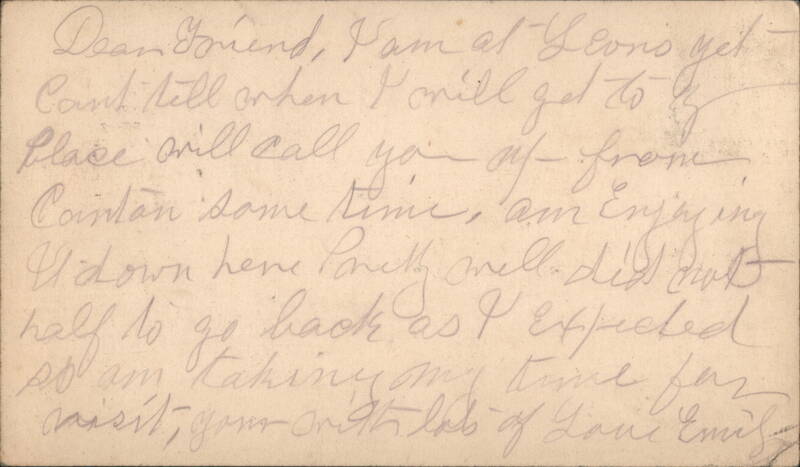 Dear Friend, I am at Leons yet
Cant tell when I will get to y
place will call you up from
Canton some time. am Enjoying
It down here Pretty well did not
half to go back as I Expected
so am taking my time for
visit, your with lots of Love Emily